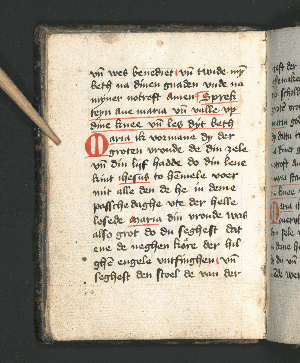 vn̄ wes benediet vn̄ twide my
beth na dinen gnaden vnde na
myner notroft amen Sprek
eyn aue maria vn̄ valle vp
dine knee vn̄ les dyt beth
Maria ik vormane dy der
groten vrōude de din zele
vn̄ din lyf hadde do din leue
kint ihesus to hemele voer
mit alle den de he in deme
passche daghe vte der helle
losede maria din vroude was
also grot do du seghest dat
ene de neghen köre der hil
ghē engele vntfinghen vn̄
seghest den stoel de van der